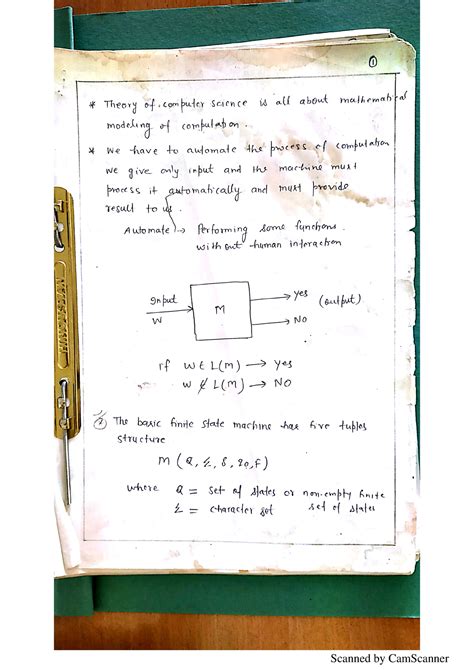 ①
* Theory of computer science is all about mathematical
modeling of computation.
* We have to automate the process of computation
we give only input and the machine must
process it automatically and must provide
result to us.
Automate → Performing some functions
without human interaction
Input
W
M
yes
(output)
No
if w ∈ L(M) → yes
w ∉ L(M) → NO
② The basic finite state machine has five tuples
structure
M (Q, Σ, δ, q0, F)
where Q = set of states or non-empty finite
set of states
Σ = character set
Scanned by CamScanner